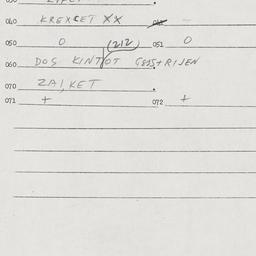 060 KREXCET XX
050 0 (212) 051 0
060 DOS KINT OT GESTRIJEN
070 ZAI, KET
071 + 072 +